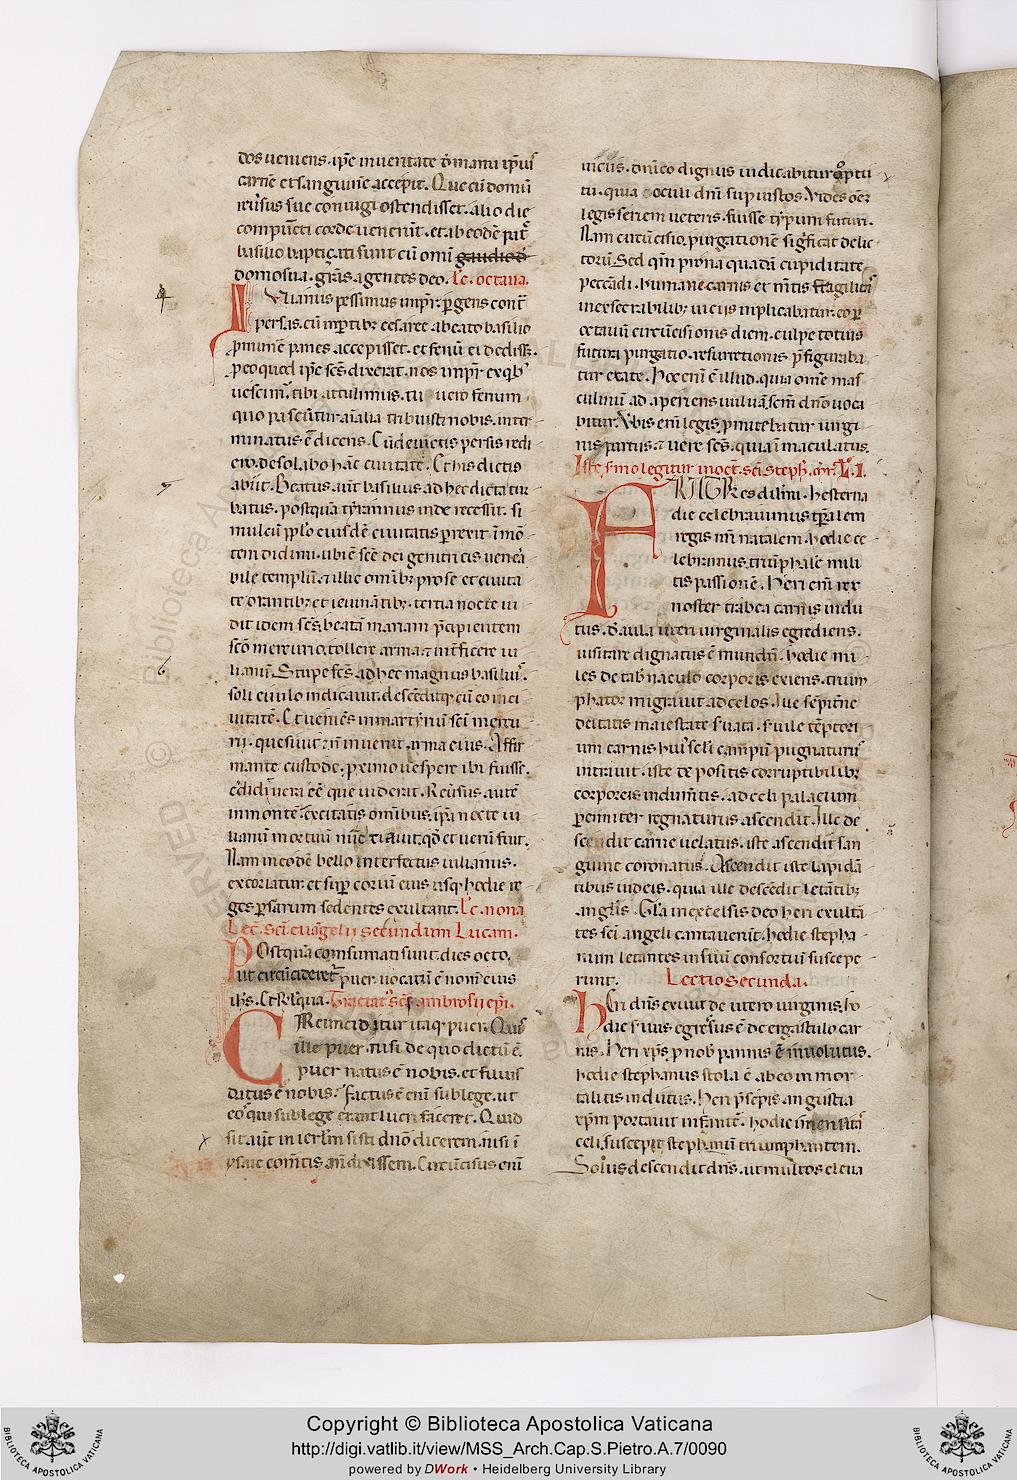 dos ueniens. ip̄e in ueritate d̄ manu ip̄iuſ
carnē et sanguinē accep̄it. Que cū domū
reuſus sue coniugi ostendisset. alio die
compūcti corde uenerūt. et ab eodē pat̄
basilio baptiçati sunt cū om̄i gaudio d̄
domo sua. gr̄as agentes deo. Lc̄. octaua.
Iulianus pessimus imp̄r. p̄gens cont̄
persas. cū
p̄mune panes accepisset. et fenū ei dediss;.
p̄ eo quod ip̄e sc̄s dixerat. nos imp̄r ex qb'
uescim̄. tibi attulimus. tu uero fenum
quo pascūtur aīalia tribuisti nobis. inter
minatus ē dicens. Cū deuictis persis redi
ero. desolabo hāc ciuitatē. Et his dictis
abiit. Beatus aūt basilius ad hec dicta tur
batus. postquā tyrannus inde recessit. si
mul cū pplo eiusdē ciuitatis p̄rexit ī mō
tem didimi. ubi ē sc̄e dei genitricis uenera
bile templū. ⁊ illic omībꝫ pro se et ciuita
te orantibꝫ et ieiunātibꝫ. tertia nocte ui
dit idem sc̄s beatā mariam p̄cipientem
sc̄o mercurio. tollere arma ⁊ int̄ficere iu
lianū. Stupefc̄s ad hec magnus basiliuſ.
soli eu ulo indicauit. descēditqꝫ cū eo in ci
uitatē. Et ueniēs in martyriū sc̄i mercu
rii. quesiuit ⁊ n̄ inuenit arma eius. Affir
mante custode. p̄ximo uespere ibi fuisse.
c̄didit uera eē que uiderat. Reūsus autē
in montē. excitatis omībus. ip̄a nocte iu
lianū mortuū nūtiauit. qd̄ et uerū fuit.
Nam in eodē bello interfectus iulianus.
excoriatur. et sup̄ coriū eius usqꝫ hodie re
ges p̄sarum sedentes exultant. Lc̄. nona
Lec̄. sc̄i euāgelii secundum Lucam.
Postquā consumati sunt dies octo.
ut circūcideret̄ puer. uocatū ē nom̄ eius
ih̄s. Et reliqua. Tractat' sc̄i ambrosii epi.
Circumciditur itaqꝫ puer. Quiſ
ille puer. nisi de quo dictū ē.
puer natus ē nobis. et filius
datus ē nobis. Factus ē eni sub lege. ut
eos qui sub lege erant lucrifaceret. Quid
sit aūt in ierlm̄ sisti dn̄o dicerem. nisi ī
ysaie comītis an̄ dixissem. Circūcisus enī
uiciis. dn̄i eo dignus iudicabitur aspectu
tu. quia oculi dn̄i sup iustos. Vides om̄e
legis seriem ueteris. fuisse typum futuri.
Nam circūcisio. purgationē significat delic
torū. Sed qm̄ prona quadā cupiditate
peccādi. humane carnis et mentis fragilitas
inexsecrabilibꝫ uiciis inplicabatur. per
octauū circūcisionis diem. culpe totius
futura purgatio. resurrectionis p̄figuraba
tur etate. Hoc eni ē illud. quia omē mas
culinū ad aperiens uuluā. scm̄ dn̄o uoca
bitur. Verbis eni legis. p̄mittebatur uirgi
nis partus. ⁊ uere sc̄s. quia inmaculatus.
Iste sermo legitur in oct̄. sc̄i steph̄. m̄r. L̄. I.
FRATRes dil̄mi. hesterna
die celebrauimus tp̄alem
regis nr̄i natalem. hodie ce
lebramus. triūphalē mili
tis passionē. Heri eni rex
noster trabea carnis indu
tus. d̄ aula uteri uirginalis egrediens.
uisitare dignatus ē mundū. hodie mi
les de tab̄naculo corporis exiens. trium
phator migrauit ad celos. Ille sēpit̄ne
deitatis maiestate suata. seruile tēptori
um carnis huiꝰ seli campū pugnaturuſ
intrauit. iste depositis corruptibilibꝫ
corporeis indum̄tis. ad celi palacium
p̄enniter regnaturus ascendit. Ille de
scendit carne uelatus. iste ascendit san
guine coronatus. Ascendit iste lapidā
tibus iudeis. quia ille descēdit letātibꝫ
anglis. Gl̄a in excelsis deo heri exultā
tes sc̄i angeli cantauerūt. hodie stepha
num letantes in suū consortiū suscepe
runt. Lectio secunda.
Heri dn̄s exiuit de utero uirginis. ho
die seruus egressus ē de ergastulo car
nis. Heri xp̄s. p̄ nob̄ pannis ē inuolutus.
hodie stephanus stola ē ab eo inmor
talitatis indutus. Heri p̄sepis angustia
xp̄m portauit infantē. hodie imensitaſ
celi. suscepit stephanū triumphantem.
Solus descendit dn̄s. ut multos eleua
Copyright © Biblioteca Apostolica Vaticana
http://digi.vatlib.it/view/MSS_Arch.Cap.S.Pietro.A.7/0090
powered by DWork • Heidelberg University Library
BIBLIOTECA APOSTOLICA VATICANA
BIBLIOTECA APOSTOLICA VATICANA